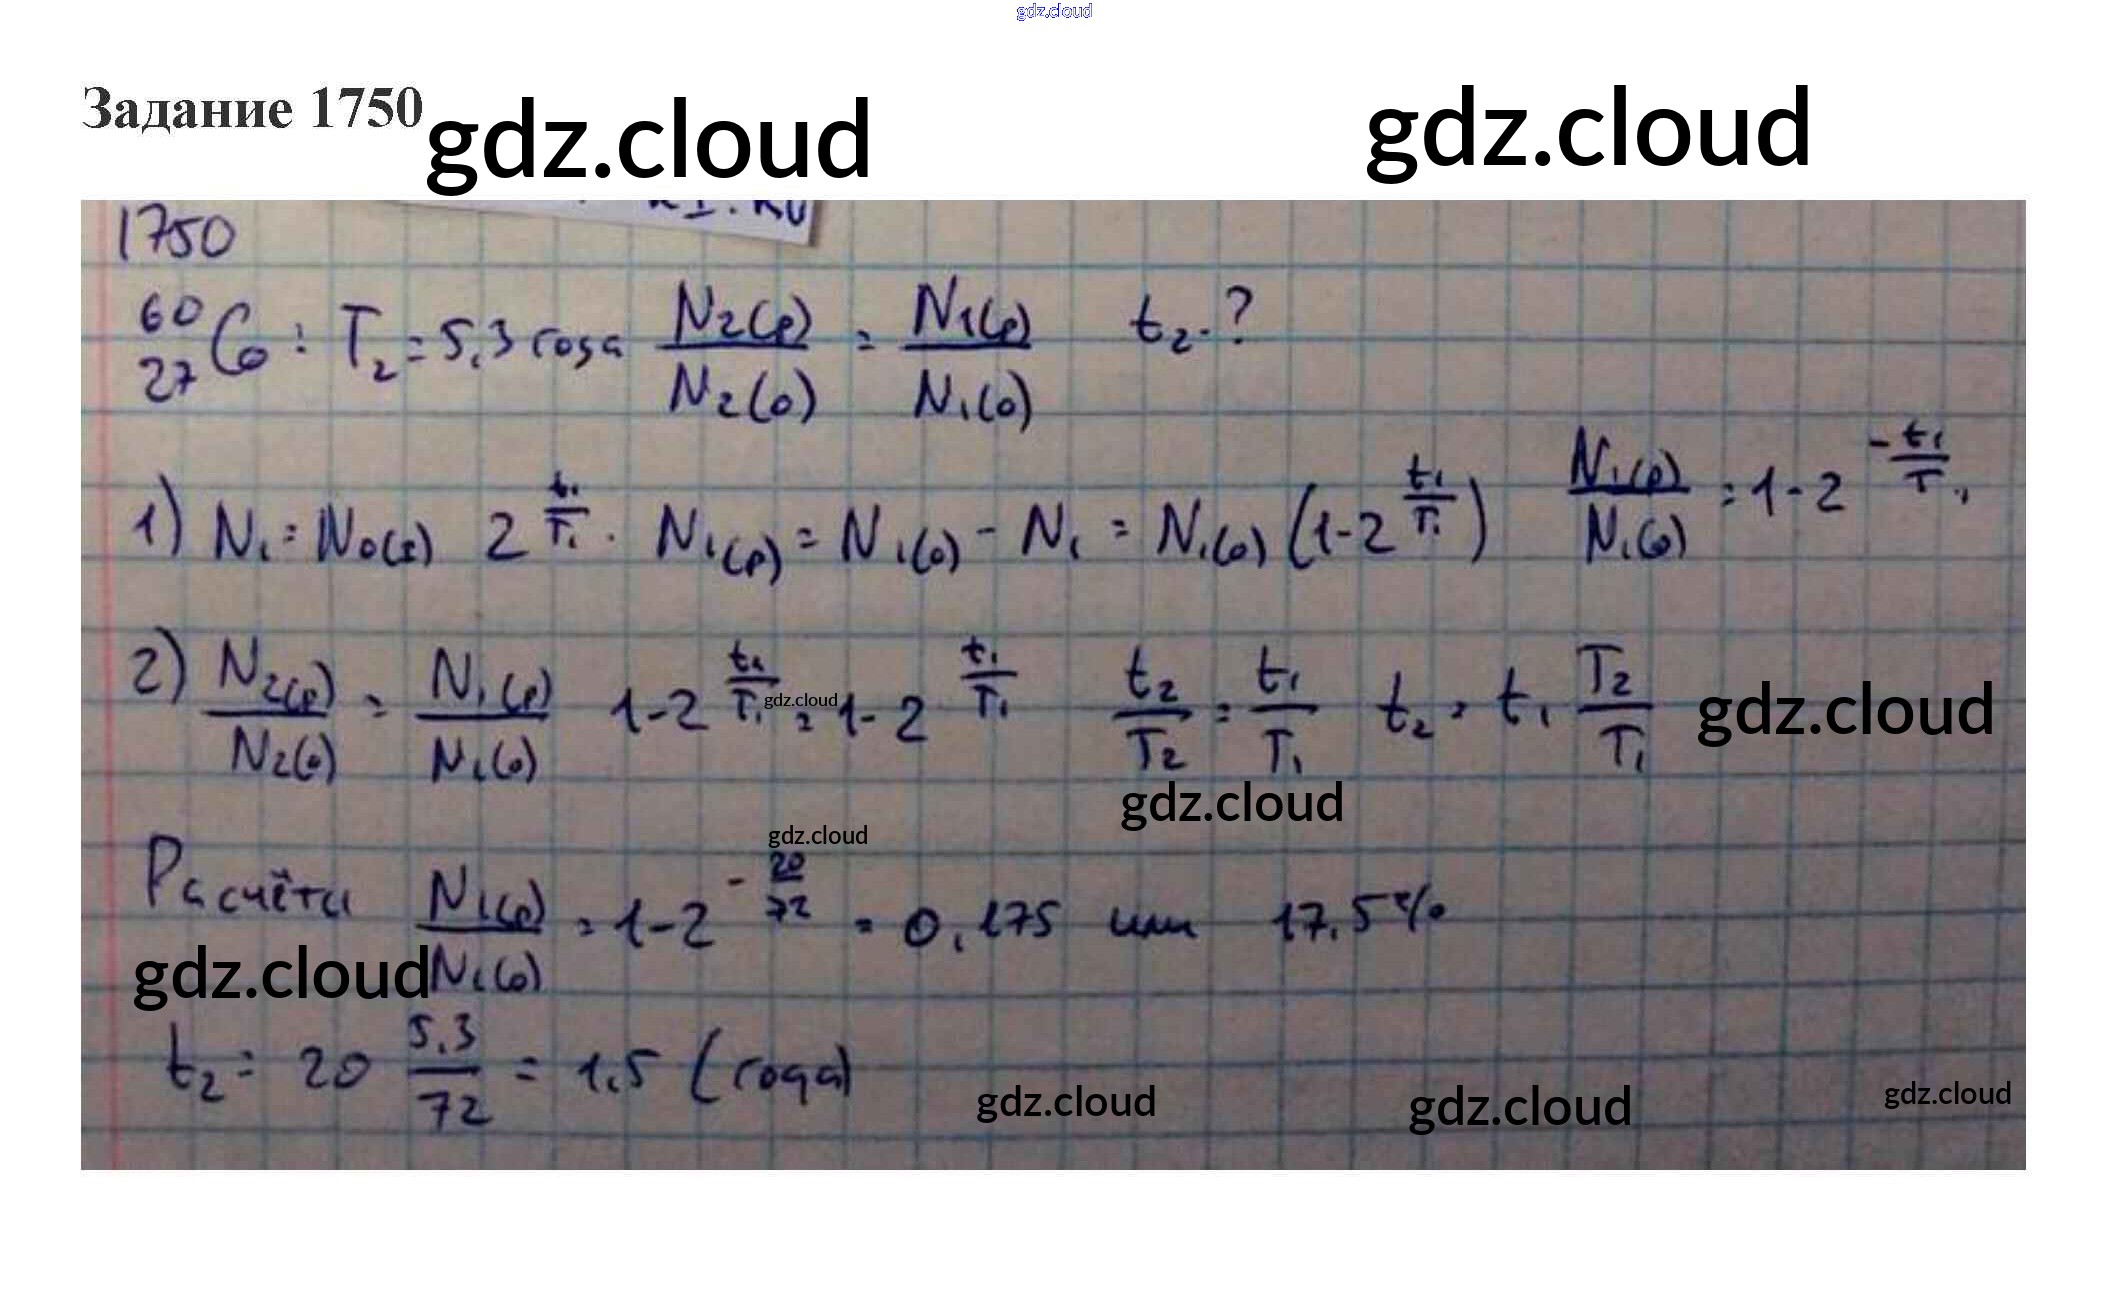 gdz.cloud
Задание 1750
gdz.cloud gdz.cloud
1750
⁶⁰₂₇Co : T₂ = 5,3 года N₂(р)/N₂(0) = N₁(р)/N₁(0) t₂ - ?
1) N₁ = N₀(1) 2^(t₁/T₁). N₁(р) = N₁(0) - N₁ = N₁(0) (1-2^(t₁/T₁)) N₁(р)/N₁(0) = 1-2^(-t₁/T₁)
2) N₂(р)/N₂(0) = N₁(р)/N₁(0) 1-2^(t₁/T₁) = 1-2^(t₁/T₁) t₂/T₂ = t₁/T₁ t₂ = t₁ T₂/T₁
gdz.cloud
gdz.cloud
gdz.cloud
gdz.cloud
Расчёты N₁(р)/N₁(0) = 1-2^(-20/72) = 0,175 или 17,5%
gdz.cloud
t₂ = 20 5,3/72 = 1,5 (года)
gdz.cloud gdz.cloud gdz.cloud